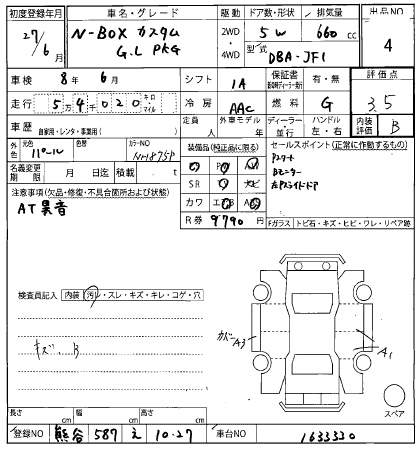 初度登録年月 車名・グレード 駆動 ドア数・形状 排気量 出品NO
27/6月 N-BOX カスタム G.L PKG 2WD・4WD 5W 660cc 4
型式 DBA-JF1
車検 8年 6月 シフト IA 保証書 有・無 評価点
走行 54,020 キロ・マイル 冷房 AAC 燃料 G 3.5
車歴 自家用・レンタ・事業用( ) 定員 人 外車モデル 年 ディーラー・並行 ハンドル 左・右 内装評価 B
外色 元色 パール 色替 カラーNO NH875P 装備品(純正品に限る) セールスポイント(正常に作動するもの)
名義変更期限 月 日迄 積載 t
SR ナビ
カワ AB
R券 9790 円
Pスタート
Bモニター
左Pスライドドア
注意事項(欠品・修復・不具合箇所および状態)
AT異音
Fガラス トビ石・キズ・ヒビ・ワレ・リペア跡
検査員記入 内装 汚レ・スレ・キズ・キレ・コゲ・穴
キズ、B
カバーA3
A1
スペア
長さ cm 幅 cm 高さ cm
登録NO 熊谷 587 え 10-27 車台NO 1633330